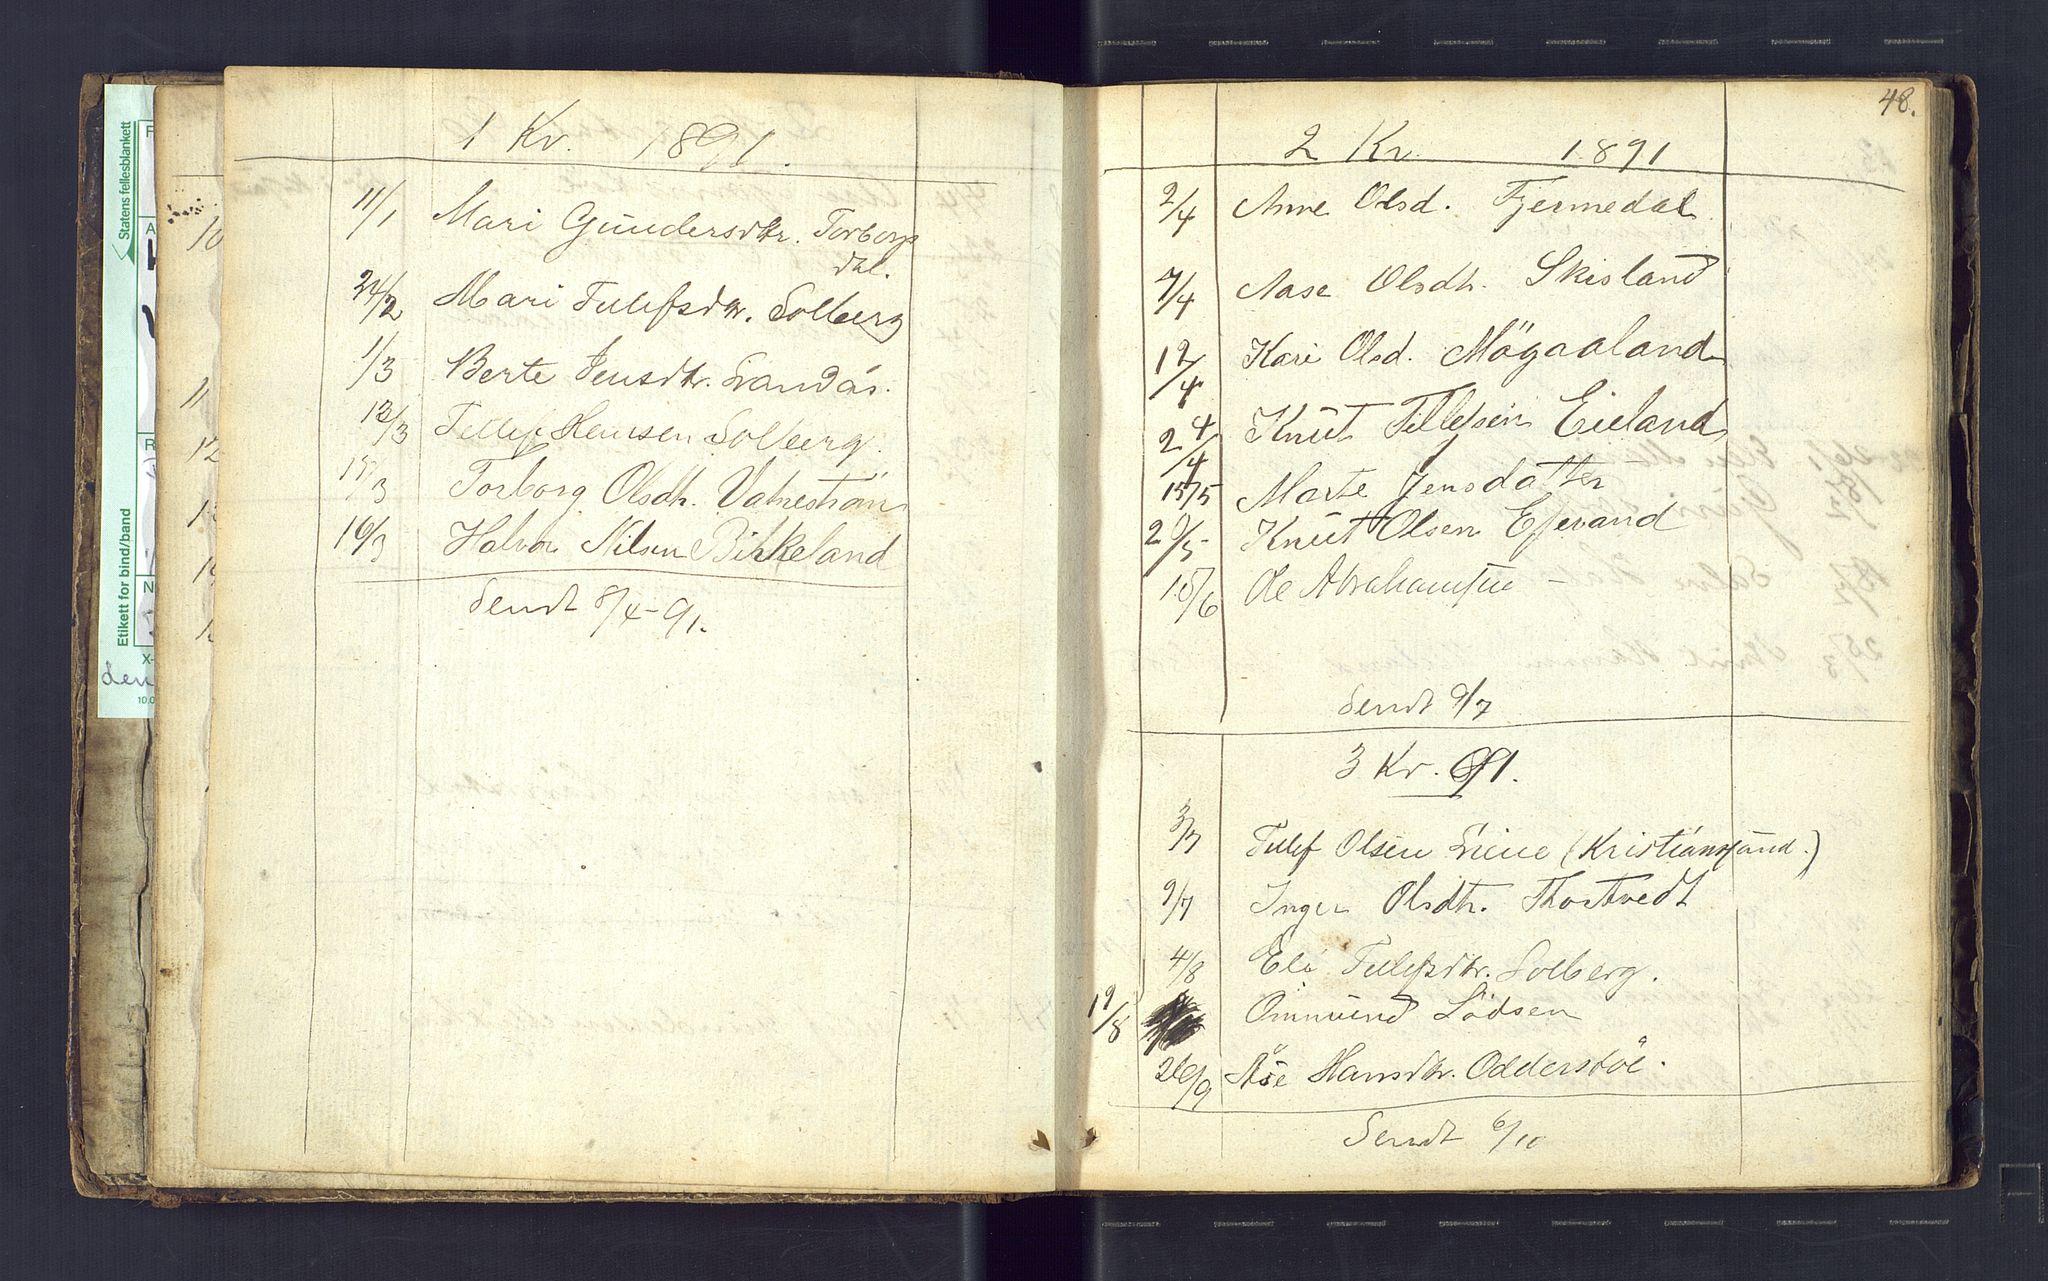 Statens fellesblankett
Etikett for bind/band
1 Kr. 1891.
11/1 Mari Gundersdtr. Torborgs
dal.
24/2 Mari Tellefsdtr. Solberg
1/3 Berte Jensdtr. Landås.
12/3 Tellef Hansen Solberg.
15/3 Torborg Olsdtr. Vatnestrøm
16/3 Halvor Nilsen Birkeland
Sendt 8/4-91.
48.
2 Kr. 1891
2/4 Anne Olsd. Fjermedal
7/4 Aase Olsdtr. Skisland
12/4 Kari Olsd. Mögaaland
24/4 Knut Tellefsen Eieland
15/5 Marte Jensdatter
29/5 Knut Olsen Efevand
18/6 Ole Abrahamsen -
Sendt 9/7
3 Kr. 91.
3/7 Tellef Olsen Liene (Kristiansand.)
9/7 Inger Olsdtr. Thortvedt
4/8 Eli Tellefsdtr. Solberg.
19/8 Ommund Lödsen
26/9 Åse Hansdtr. Odderstöl.
Sendt 6/10